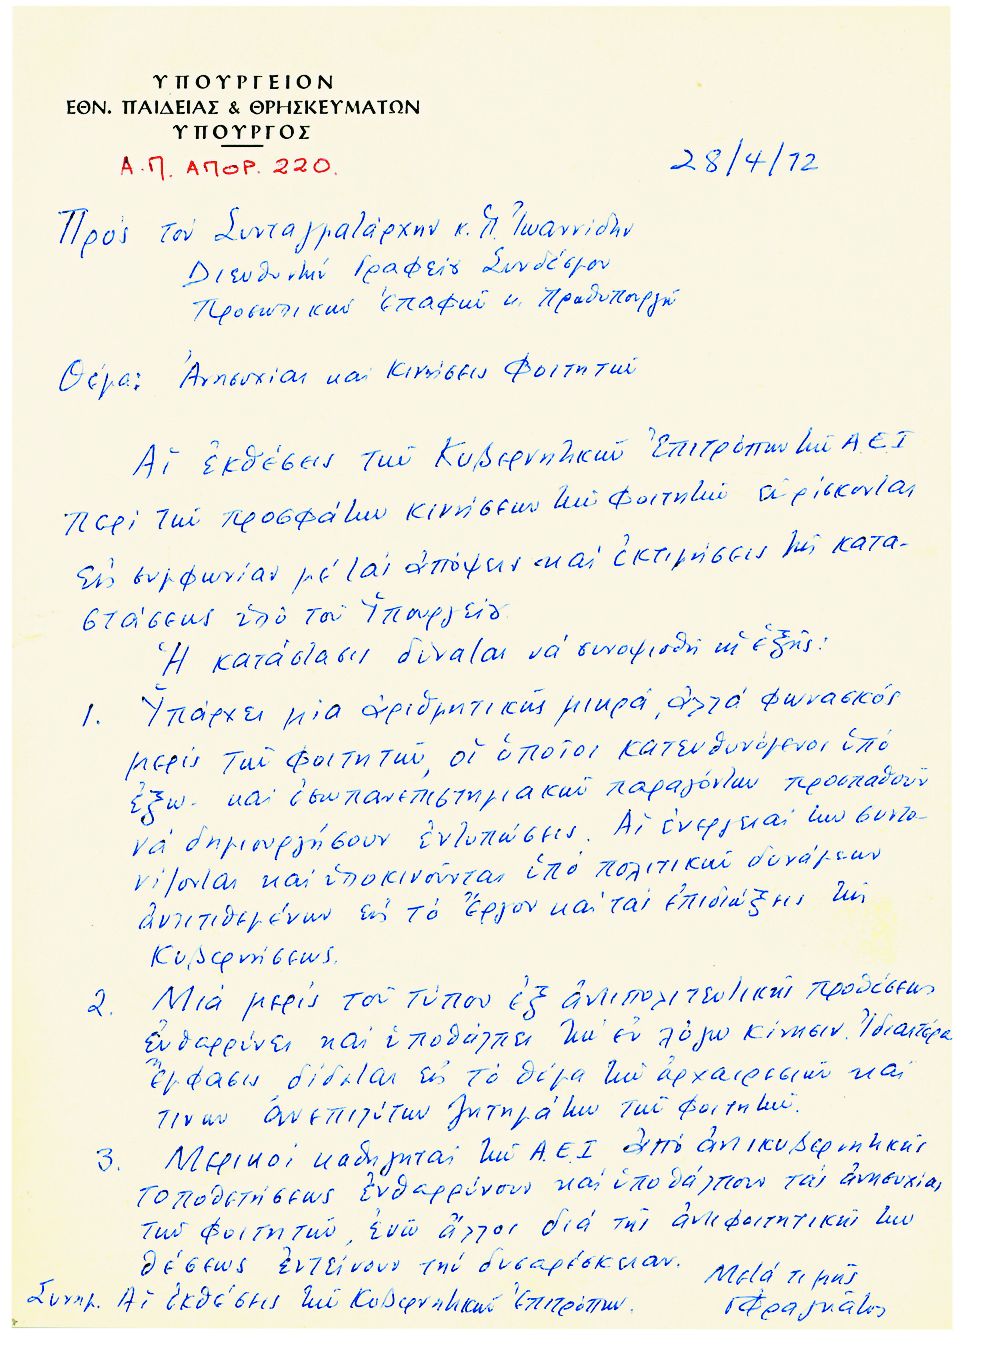 ΥΠΟΥΡΓΕΙΟΝ
ΕΘΝ. ΠΑΙΔΕΙΑΣ & ΘΡΗΣΚΕΥΜΑΤΩΝ
ΥΠΟΥΡΓΟΣ
Α.Π. ΑΠΟΡ. 220.
28/4/72
Πρός τόν Συνταγματάρχην κ. Π. Ἰωαννίδην
Διευθυντήν Γραφείου Συνδέσμου
Προσωπικῶν ἐπαφῶν κ. Πρωθυπουργοῦ
Θέμα: Ἀνησυχίαι καί κινήσεις Φοιτητῶν
Αἱ ἐκθέσεις τῶν Κυβερνητικῶν Ἐπιτρόπων τῶν Α.Ε.Ι
περί τῶν προσφάτων κινήσεων τῶν Φοιτητῶν εὑρίσκονται
εἰς συμφωνίαν μέ τάς ἀπόψεις καί ἐκτιμήσεις τῆς κατα-
στάσεως ὑπό τοῦ Ὑπουργείου.
Ἡ κατάστασις δύναται νά συνοψισθῇ ὡς ἑξῆς:
1. Ὑπάρχει μία ἀριθμητικῶς μικρά, ἀλλά φωνασκός
μερίς τῶν φοιτητῶν, οἱ ὁποῖοι κατευθυνόμενοι ὑπό
ἐξω- καί ἐσωπανεπιστημιακῶν παραγόντων προσπαθοῦν
νά δημιουργήσουν ἐντυπώσεις. Αἱ ἐνέργειαί των συντο-
νίζονται καί ὑποκινοῦνται ὑπό πολιτικῶν δυνάμεων
ἀντιτιθεμένων εἰς τό Ἔργον καί τάς ἐπιδιώξεις τῆς
Κυβερνήσεως.
2. Μιά μερίς τοῦ τύπου ἐξ ἀντιπολιτευτικῆς προθέσεως
ἐνθαρρύνει καί ὑποθάλπει τήν ἐν λόγῳ κίνησιν. Ἰδιαιτέρα
ἔμφασις δίδεται εἰς τό θέμα τῶν ἀρχαιρεσιῶν καί
τινων ἀνεπιλύτων ζητημάτων τῶν φοιτητῶν.
3. Μερικοί καθηγηταί τῶν Α.Ε.Ι ἀπό ἀντικυβερνητικῆς
τοποθετήσεως ἐνθαρρύνουν καί ὑποθάλπουν τάς ἀνησυχίας
τῶν φοιτητῶν, ἐνῶ ἄλλοι διά τῆς ἀντιφοιτητικῆς των
θέσεως ἐντείνουν τήν δυσαρέσκειαν.
Μετά τιμῆς
ΓΦραγκᾶτος
Συνημ. Αἱ ἐκθέσεις τῶν Κυβερνητικῶν Ἐπιτρόπων.